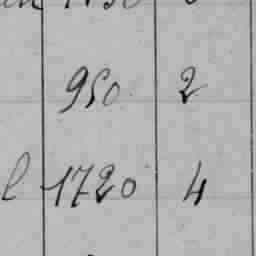 950 2
l 1720 4